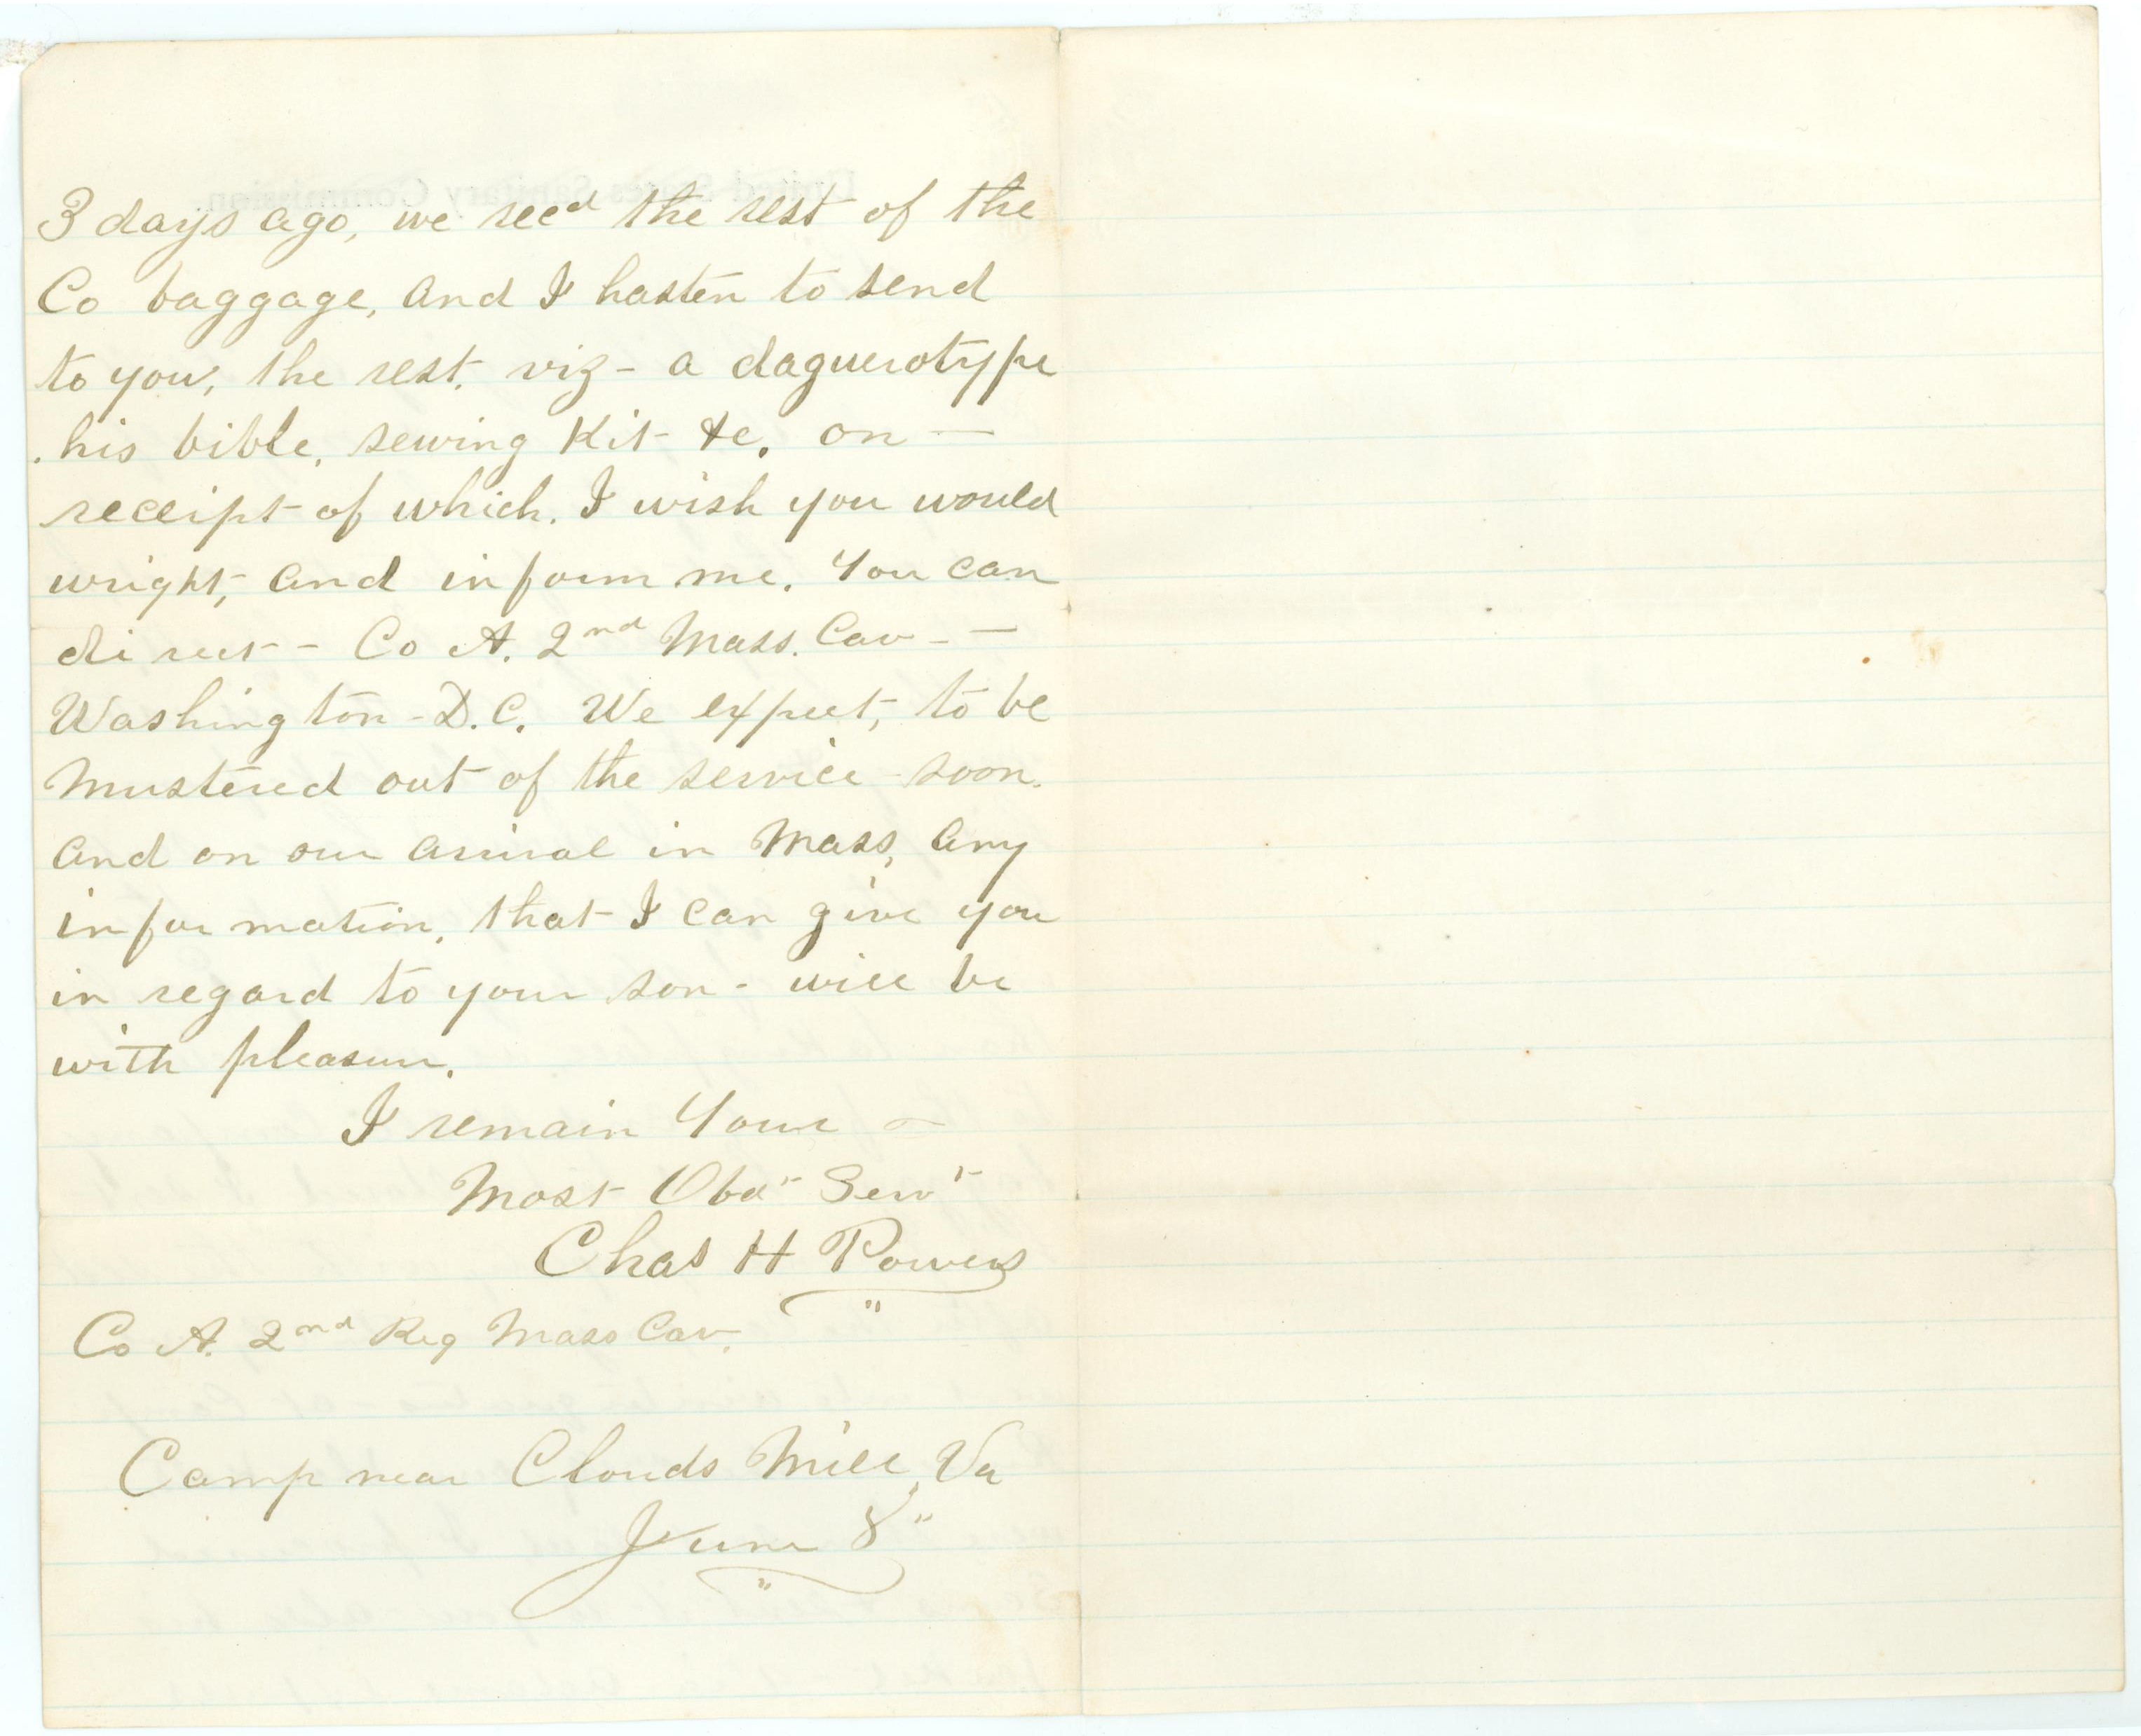 United States Sanitary Commission.
3 days ago, we recd the rest of the
Co baggage, and I hasten to send
to you, the rest, viz - a daguerotype
his bible, sewing Kit &c. on —
receipt of which. I wish you would
wright, and inform me. You can
direct - Co A. 2nd Mass. Cav - —
Washington - D.C. We expect, to be
Mustered out of the service - soon.
and on our arival in Mass, any
information, that I can give you
in regard to your son - will be
with pleasure.
I remain Your —
Most Obdt Servt
Chas H Powers
"
Co A. 2nd Reg Mass Cav.
Camp near Clouds Mill, Va
June 8"
"